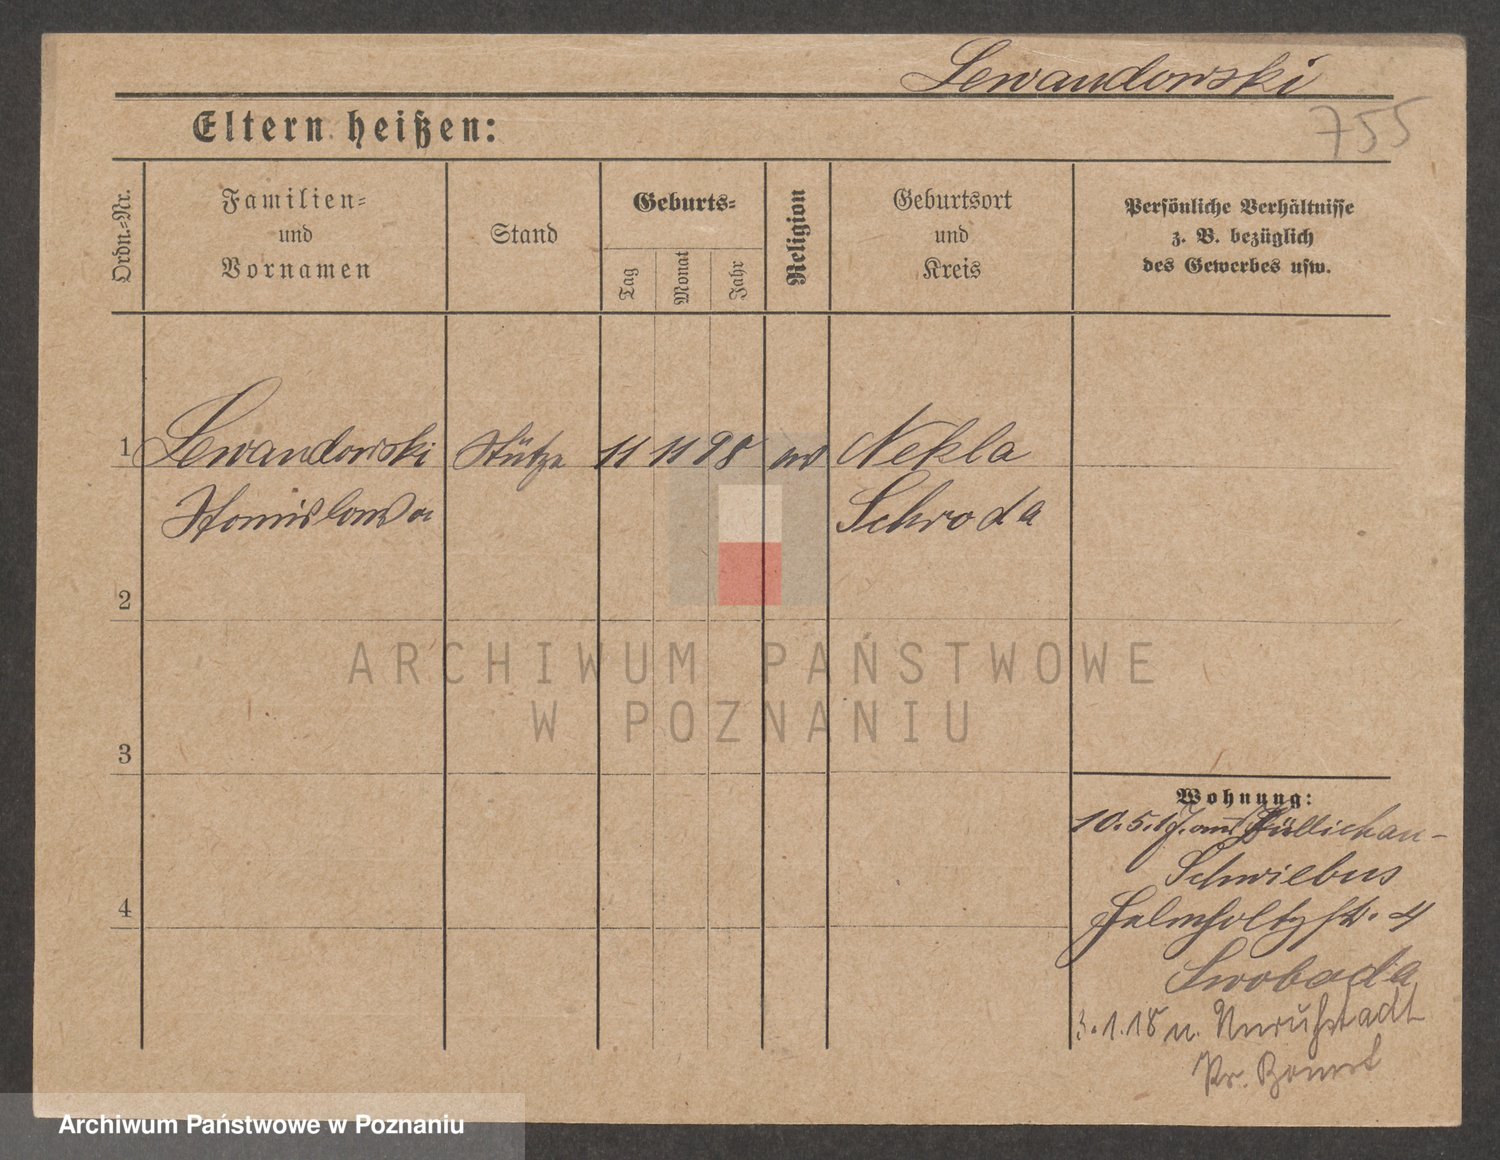 Lewandowski
755
Eltern heißen:
Ordn.-Nr.
Familien-
und
Vornamen
Stand
Geburts-
Tag
Monat
Jahr
Religion
Geburtsort
und
Kreis
Persönliche Verhältnisse
z. B. bezüglich
des Gewerbes usw.
1 Lewandowski Stütze 11 11 98 Nekla
Stanislawa Schroda
2
3
4
Wohnung:
10.5.17. aus Züllichau-
Schwiebus
Helmholtzstr. 4
Swoboda
3.1.18 n. Unruhstadt
Kr. Bomst
ARCHIWUM PAŃSTWOWE
W POZNANIU
Archiwum Państwowe w Poznaniu